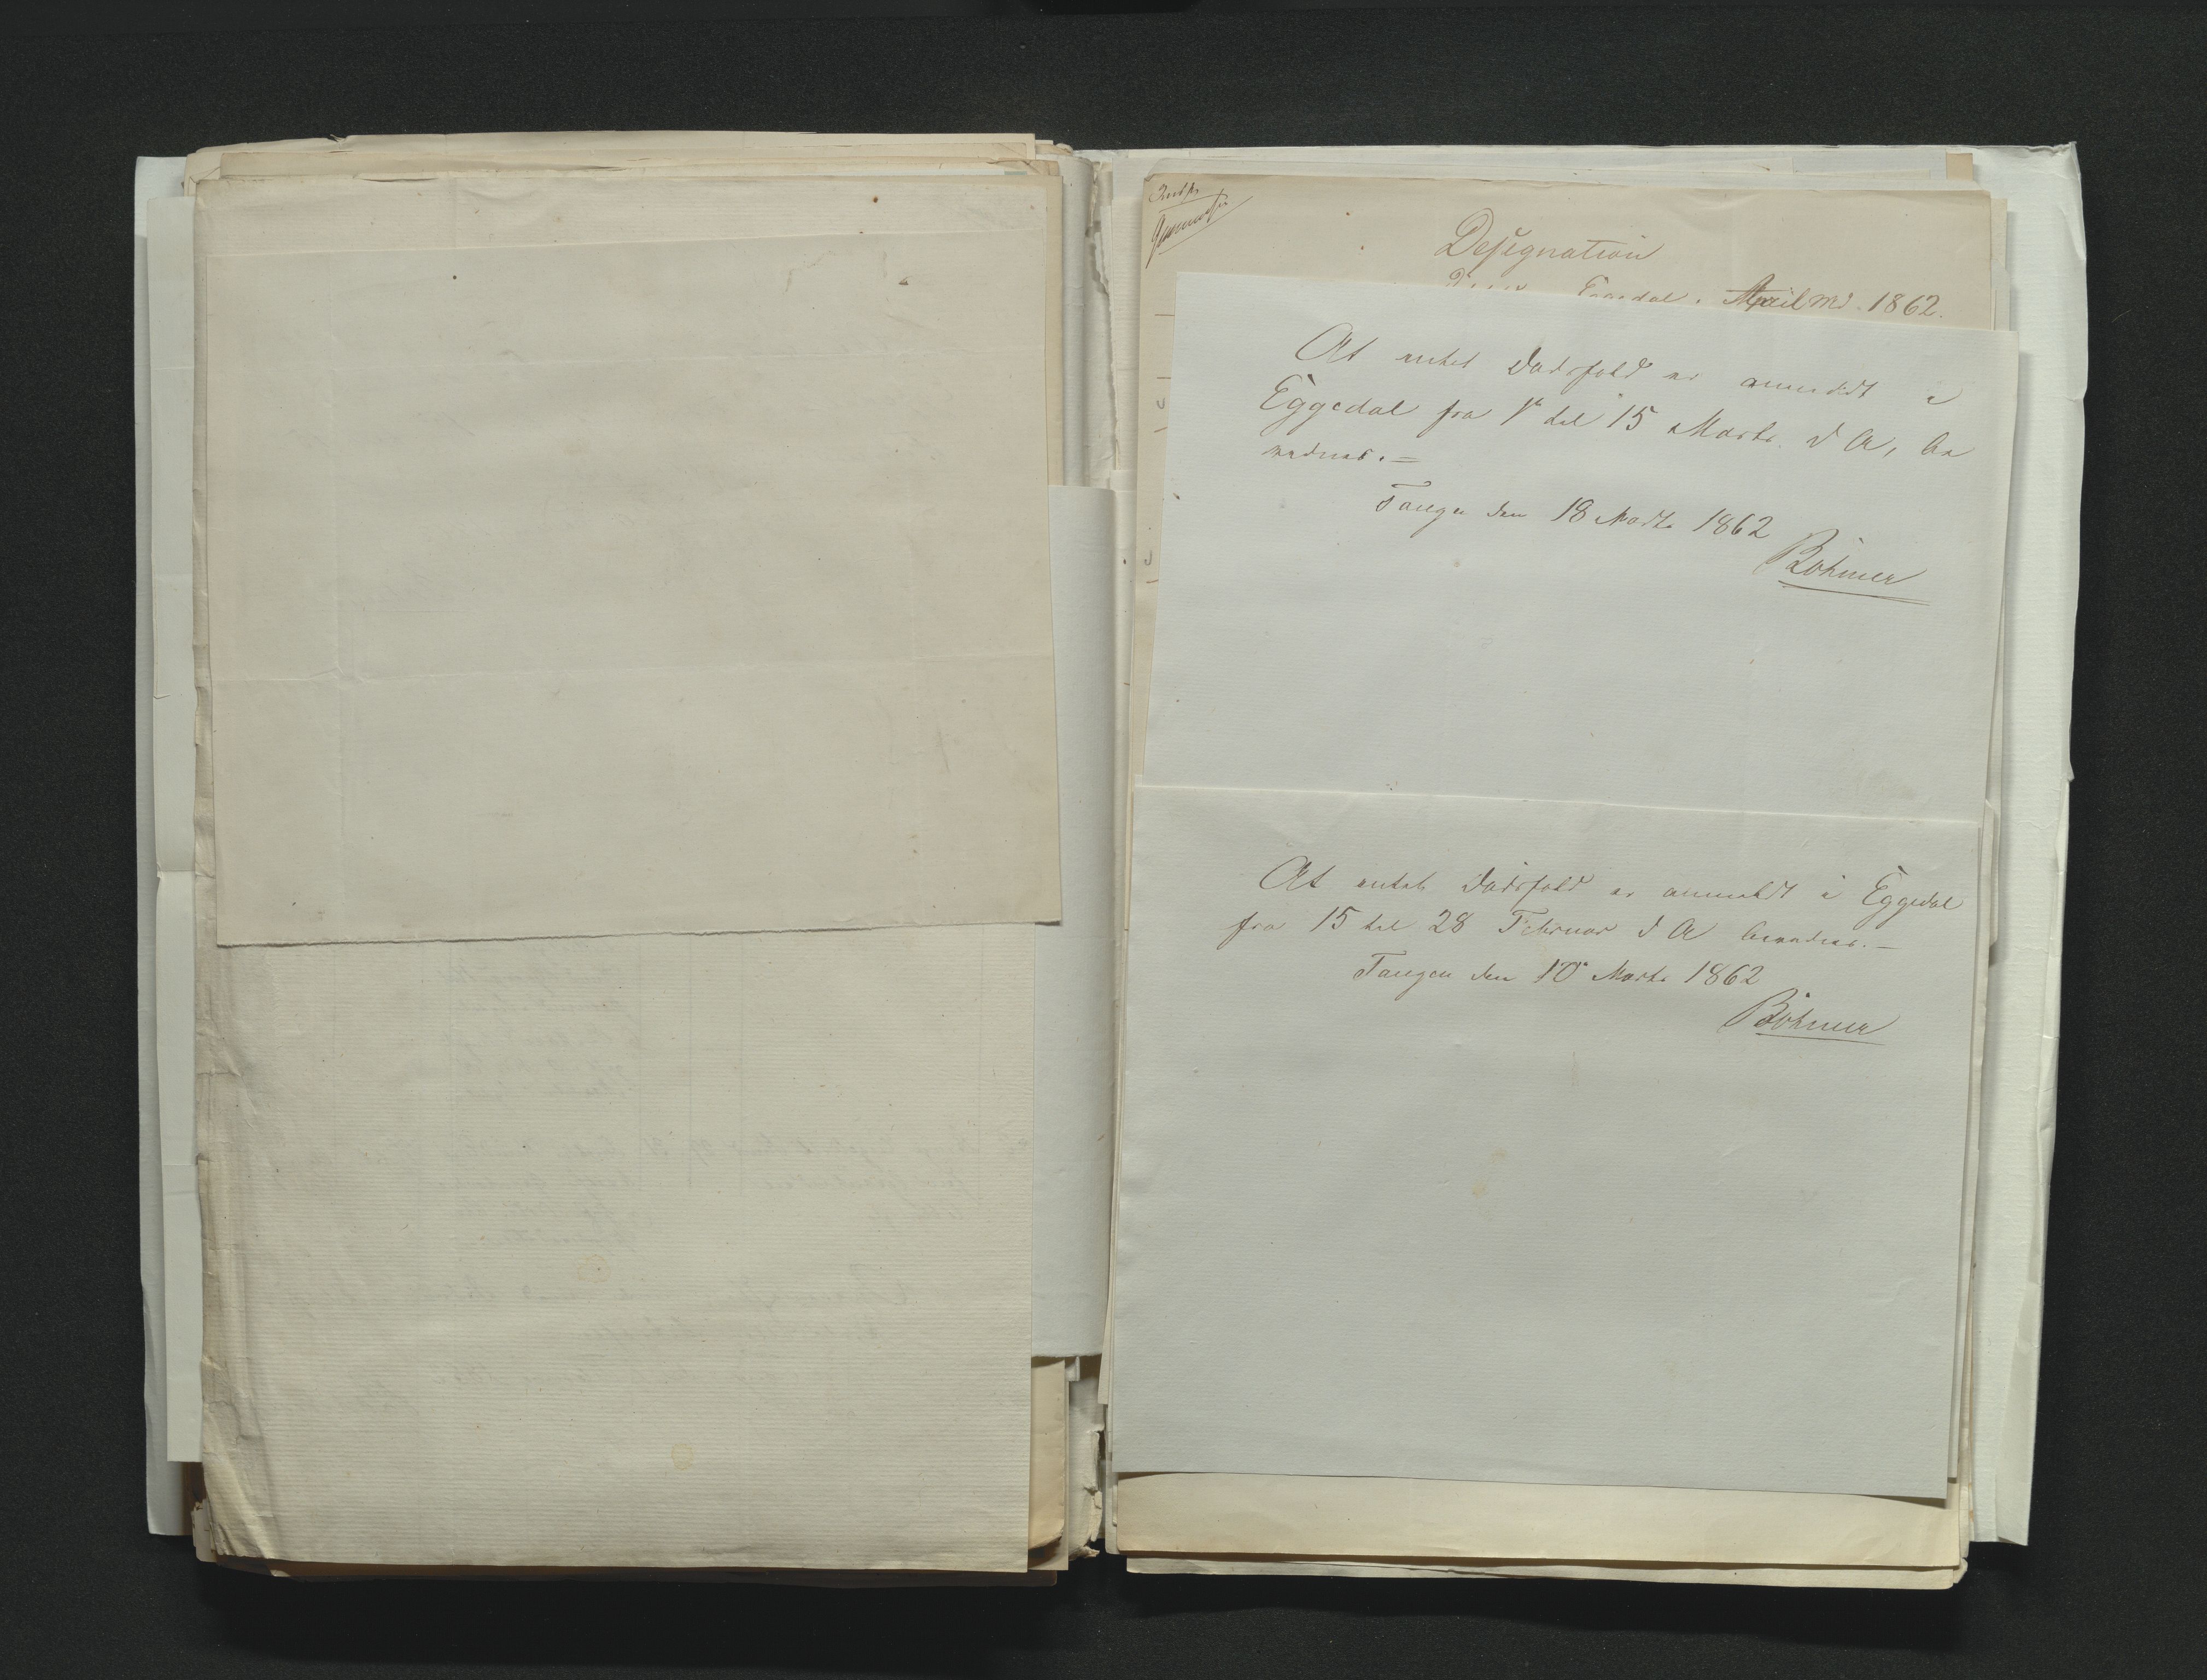 Designation
Eggedal i April Md. 1862.
At intet Dødsfald er anmeldt i
Eggedal fra 1ste til 15 Marts d A, be
vidnes. =
Tangen den 18 Marts 1862
Böhmer
At intet Dødsfald er anmeldt i Eggedal
fra 15 til 28 Februar d A bevidnes. –
Tangen den 10 Marts 1862
Böhmer